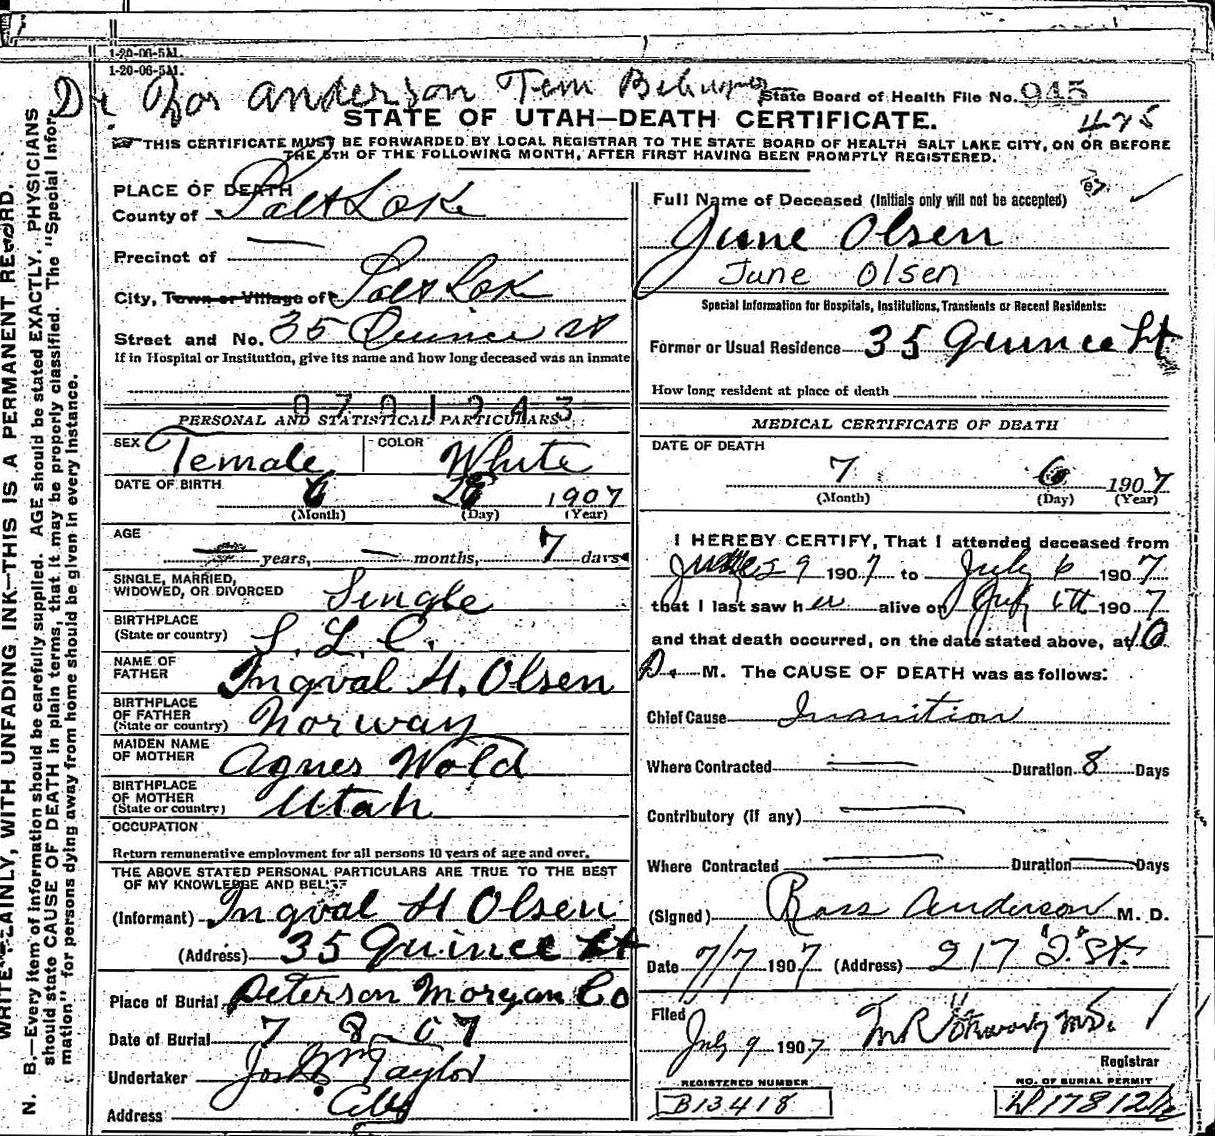 1-20-06-5M.
1-20-06-5M.
Dr. Ros Anderson Tem
State Board of Health File No. 945
475
STATE OF UTAH—DEATH CERTIFICATE.
THIS CERTIFICATE MUST BE FORWARDED BY LOCAL REGISTRAR TO THE STATE BOARD OF HEALTH SALT LAKE CITY, ON OR BEFORE
THE 5TH OF THE FOLLOWING MONTH, AFTER FIRST HAVING BEEN PROMPTLY REGISTERED.
WRITE PLAINLY, WITH UNFADING INK—THIS IS A PERMANENT RECORD.
N. B.—Every item of information should be carefully supplied. AGE should be stated EXACTLY. PHYSICIANS
should state CAUSE OF DEATH in plain terms, that it may be properly classified. The "Special Infor-
mation" for persons dying away from home should be given in every instance.
PLACE OF DEATH
County of Salt Lake
Precinct of —
City, Town or Village of Salt Lake
Street and No. 35 Quince St
If in Hospital or Institution, give its name and how long deceased was an inmate
0701243
PERSONAL AND STATISTICAL PARTICULARS
SEX Female COLOR White
DATE OF BIRTH 6 28 1907
(Month) (Day) (Year)
AGE — years, — months, 7 days
SINGLE, MARRIED,
WIDOWED, OR DIVORCED Single
BIRTHPLACE
(State or country) S. L. C.
NAME OF
FATHER Ingval H. Olsen
BIRTHPLACE
OF FATHER
(State or country) Norway
MAIDEN NAME
OF MOTHER Agnes Wold
BIRTHPLACE
OF MOTHER
(State or country) Utah
OCCUPATION
Return remunerative employment for all persons 10 years of age and over.
THE ABOVE STATED PERSONAL PARTICULARS ARE TRUE TO THE BEST
OF MY KNOWLEDGE AND BELIEF
(Informant) Ingval H Olsen
(Address) 35 Quince St
Place of Burial Peterson Morgan Co
Date of Burial 7 8 - 07
Undertaker Jos Wm Taylor
Address City
Full Name of Deceased (Initials only will not be accepted)
June Olsen
June Olsen
Special Information for Hospitals, Institutions, Transients or Recent Residents:
Former or Usual Residence 35 Quince St
How long resident at place of death
MEDICAL CERTIFICATE OF DEATH
DATE OF DEATH
7 6 1907
(Month) (Day) (Year)
I HEREBY CERTIFY, That I attended deceased from
June 29 1907 to July 6 1907
that I last saw her alive on July 6th 1907
and that death occurred, on the date stated above, at 10
P. M. The CAUSE OF DEATH was as follows:
Chief Cause Inanition
Where Contracted — Duration 8 Days
Contributory (if any) —
Where Contracted — Duration — Days
(Signed) Ross Anderson M. D.
Date 7/7 1907 (Address) 217 "J" St.
Filed
July 9 1907
Registrar
REGISTERED NUMBER
B13418
NO. OF BURIAL PERMIT